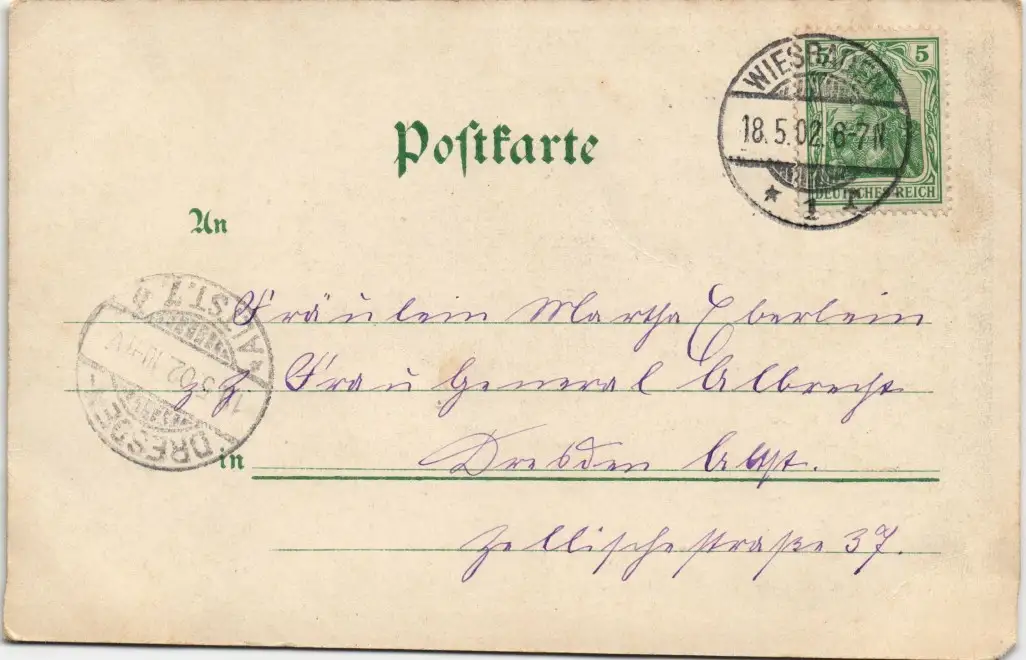 Postkarte
WIESBADEN
18.5.02. 6-7N
* 1 *
5 5
DEUTSCHES REICH
An
Fräulein Martha Eberlein
z.Z. Frau General Albrecht
in Dresden Altst.
Zellischestraße 37.
DRESDEN
5.02
ALTST. 1